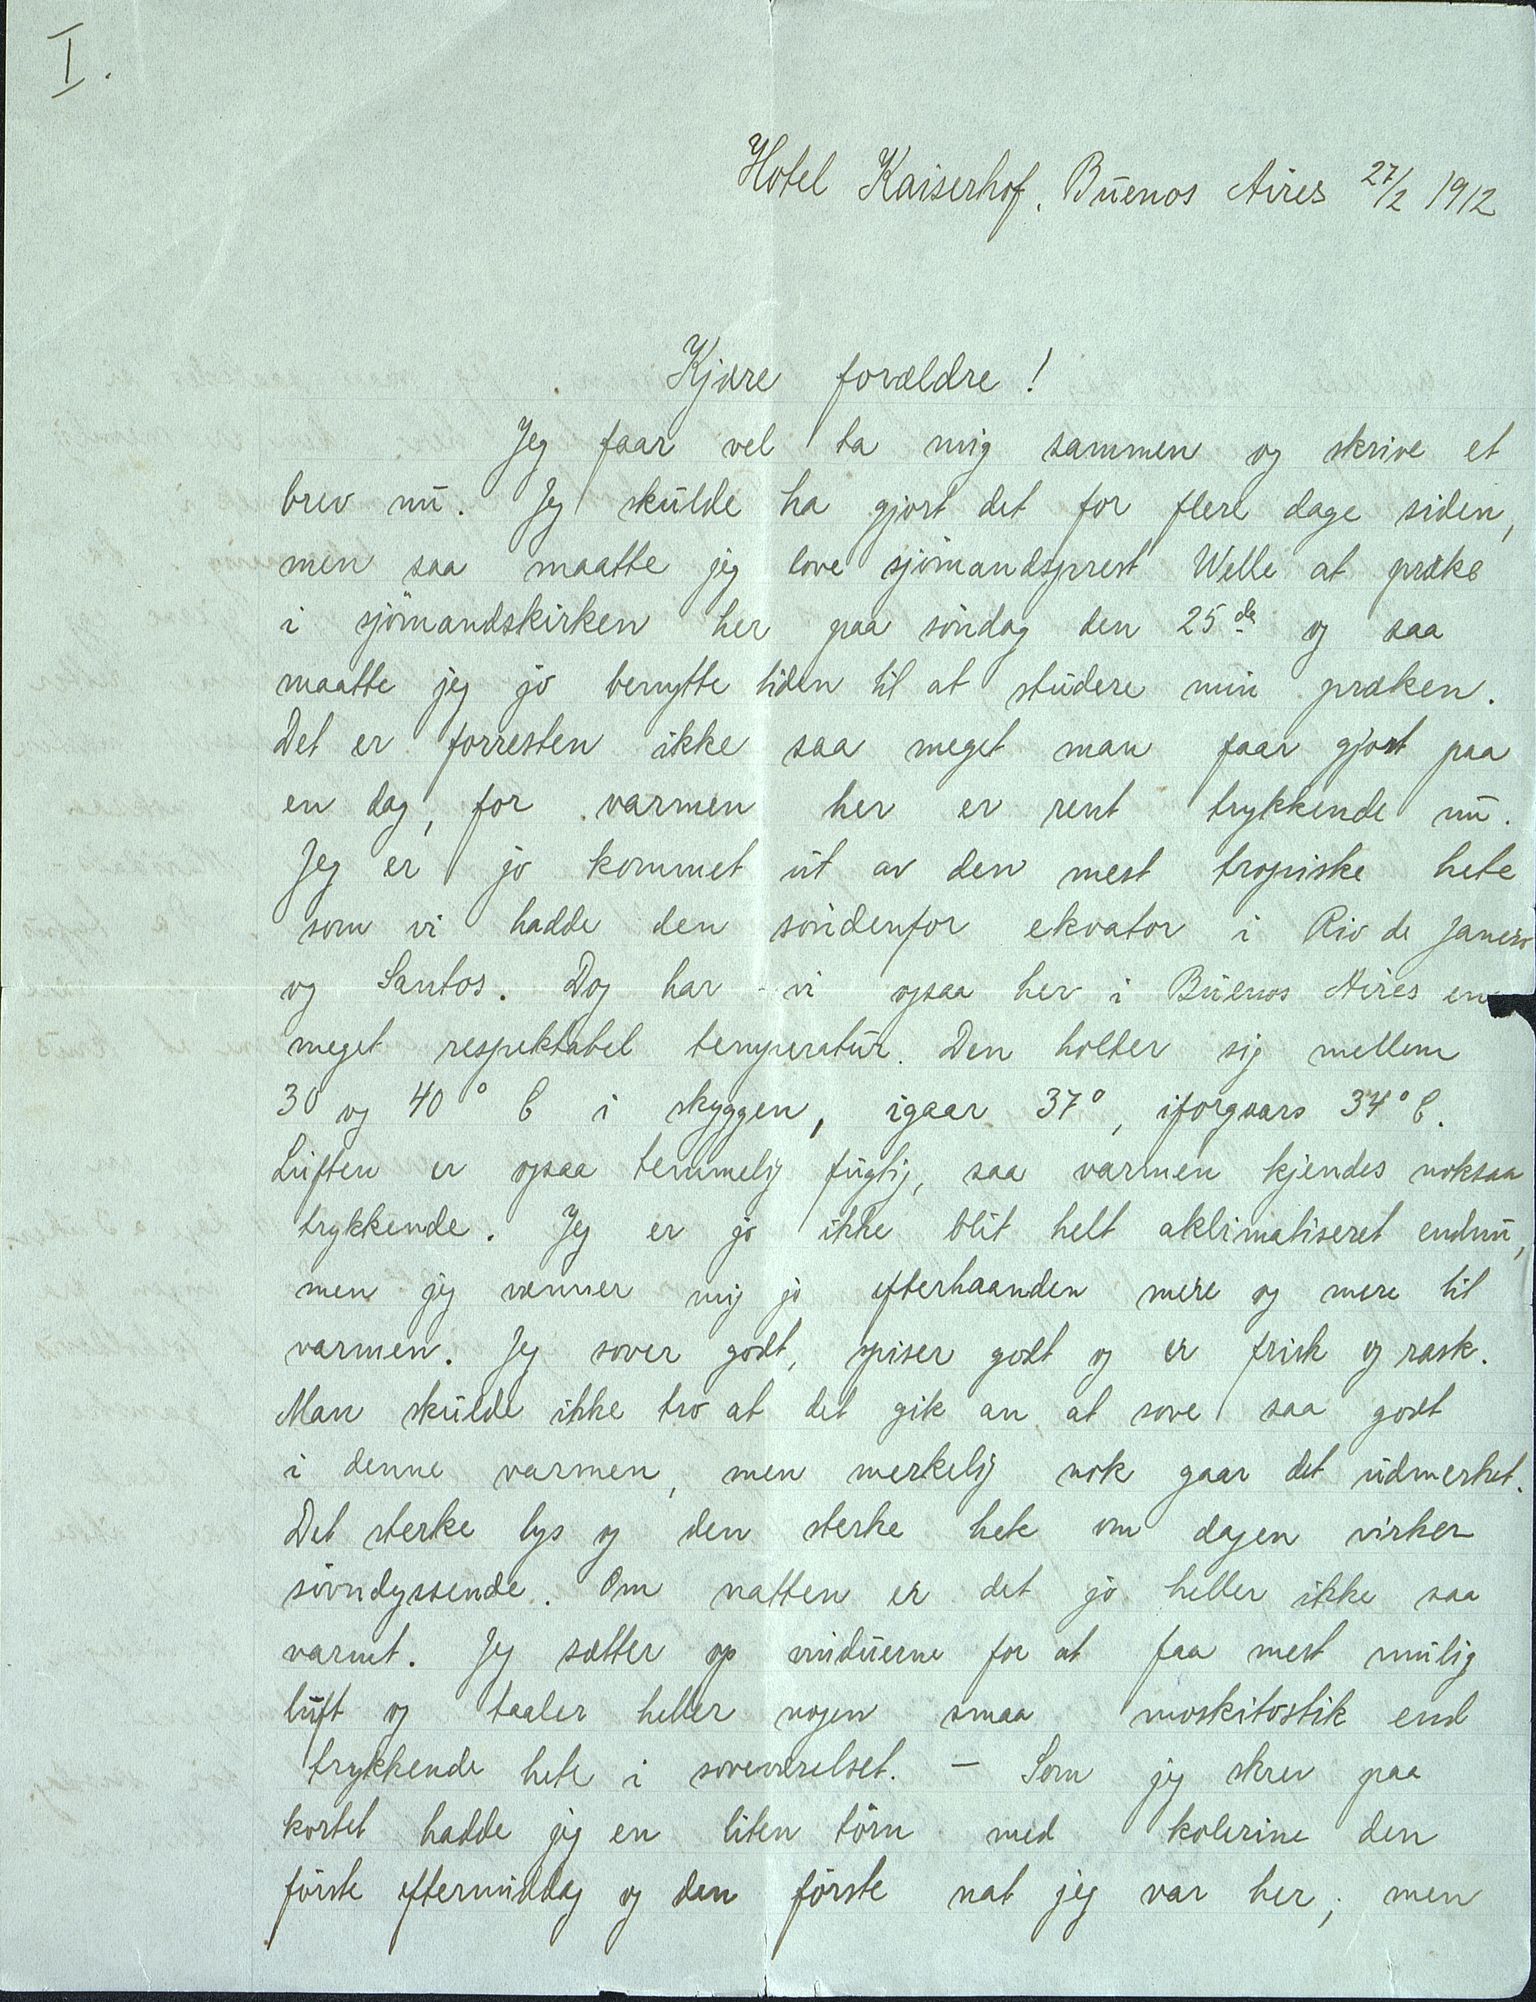 I.
Hotel Kaiserhof. Buenos Aires 27/2 1912
Kjære forældre!
Jeg faar vel ta mig sammen og skrive et
brev nu. Jeg skulde ha gjort det for flere dage siden,
men saa maatte jeg love sjömandsprest Welle at præke
i sjömandskirken her paa söndag den 25de og saa
maatte jeg jo benytte tiden til at studere min præken.
Det er forresten ikke saa meget man faar gjort paa
en dag, for varmen her er rent trykkende nu.
Jeg er jo kommet ut av den mest tropiske hete
som vi hadde den söndenfor ekvator i Rio de Janeiro
og Santos. Dog har vi ogsaa her i Buenos Aires en
meget respektabel temperatur. Den holder sig mellem
30 og 40° C i skyggen, igaar 37°, iforgaars 34° C.
Luften er ogsaa temmelig fugtig, saa varmen kjendes noksaa
trykkende. Jeg er jo ikke blit helt aklimatiseret endnu,
men jeg vænner mig jo efterhaanden mere og mere til
varmen. Jeg sover godt, spiser godt og er frisk og rask.
Man skulde ikke tro at det gik an, at sove saa godt
i denne varmen, men merkelig nok gaar det udmerket.
Det sterke lys og den sterke hete om dagen virker
sövndyssende. Om natten er det jo heller ikke saa
varmt. Jeg sætter op vinduerne for at faa mest mulig
luft og taaler heller nogen smaa moskitostik end
trykkende hete i soveværelset. — Som jeg skrev paa
kortet hadde jeg en liten törn med kolerine den
förste eftermiddag og den förste nat jeg var her; men